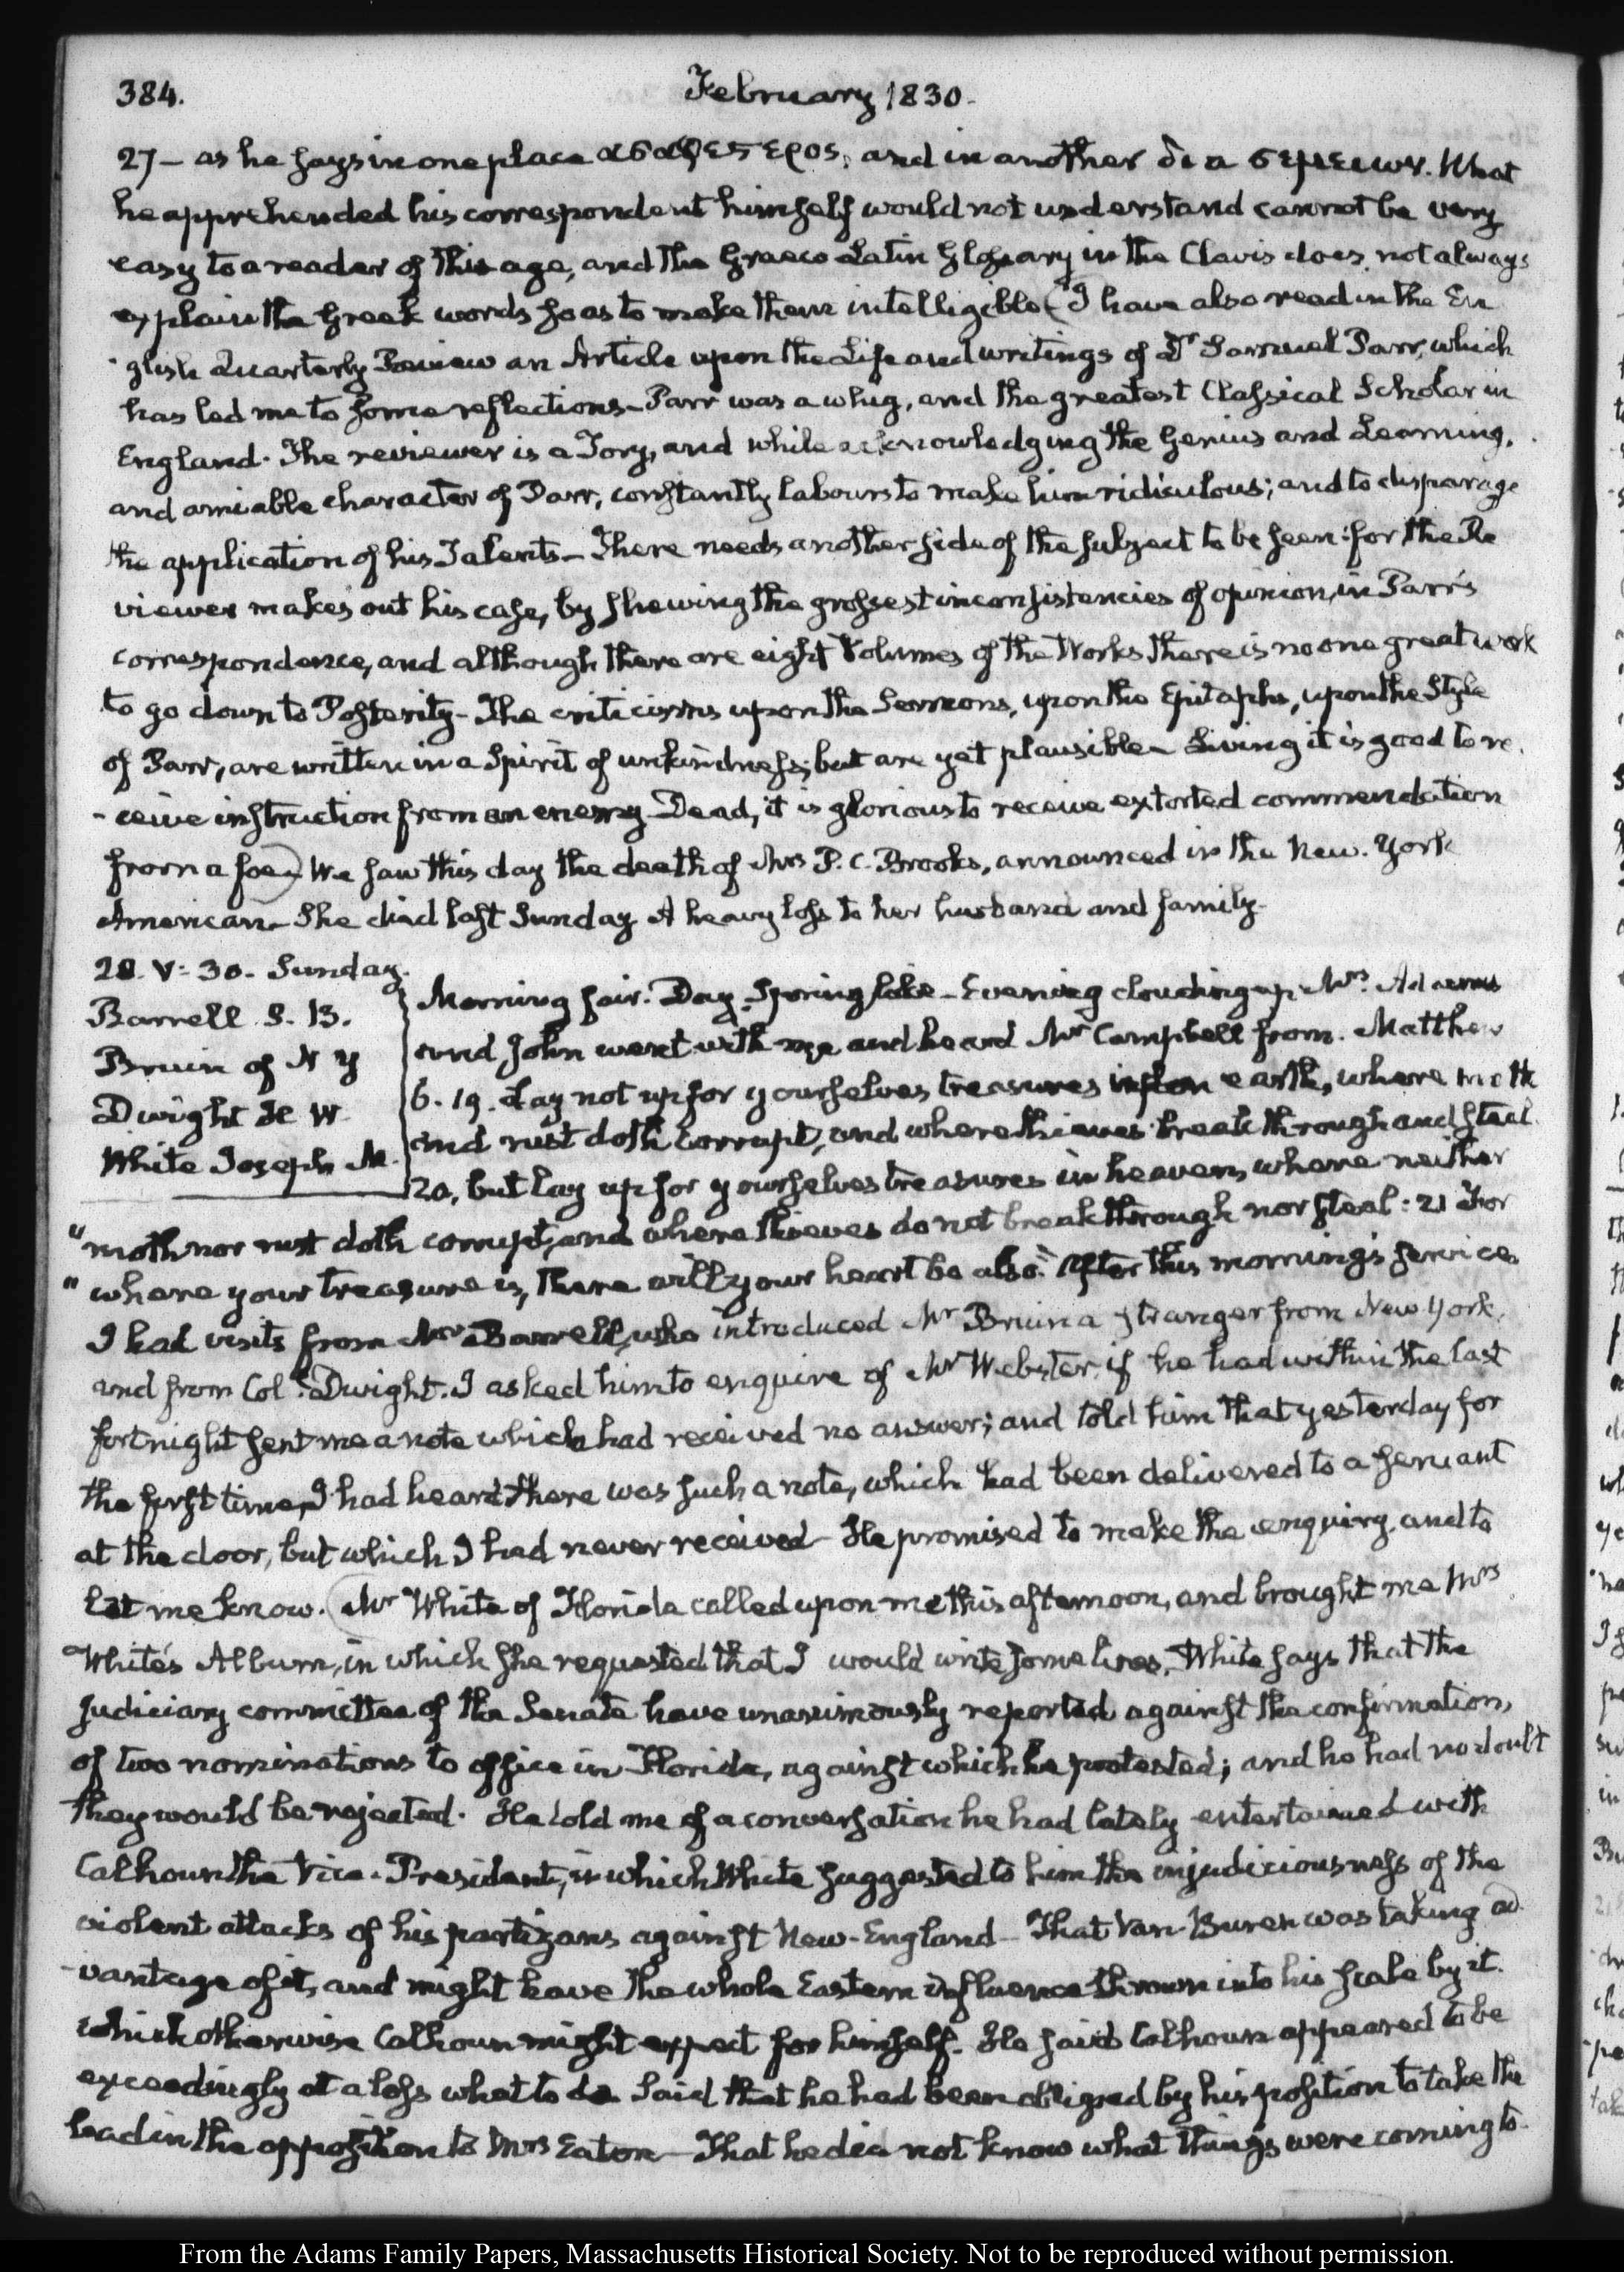 384.
February 1830.
27 — as he says in one place and in another δι α What
he apprehended his correspondent himself would not understand cannot be very
easy to a reader of this age, and the Graeco Latin Glossary in the Clavis does not always
explain the Greek words so as to make them intelligible (I have also read in the En
-glish Quarterly Review an Article upon the Life and writings of Dr Samuel Parr, which
has led me to some reflections — Parr was a whig, and the greatest Classical Scholar in
England. The reviewer is a Tory, and while acknowledging the Genius and Learning,
and amiable character of Parr, constantly labours to make him ridiculous; and to disparage
the application of his Talents — There needs another side of the subject to be seen: for the Re
viewer makes out his case, by shewing the grossest inconsistencies of opinion, in Parr's
correspondence, and although there are eight Volumes of the Works there is no one great work
to go down to Posterity — The criticisms upon the Sermons, upon the Epitaphs, upon the Style
of Parr, are written in a Spirit of unkindness; but are yet plausible — Living it is good to re
-ceive instruction from an enemy — Dead, it is glorious to receive extorted commendation
from a foe) We saw this day the death of Mrs P. C. Brooks, announced in the New-York
American — She died last Sunday A heavy loss to her husband and family —
28. V: 30. Sunday.
Barrell S. B.
Bruin of N Y
Dwight H W
White Joseph M.
Morning fair. Day Spring like — Evening clouding up. Mrs. Adams
and John went with me and heard Mr Campbell from. Matthew
6. 19. Lay not up for yourselves treasures upon earth, where moth
and rust doth corrupt, and where thieves break through and steal.
20. but lay up for yourselves treasures in heaven, where neither
"moth nor rust doth corrupt, and where thieves do not break through nor steal: 21 For
"where your treasure is, there will your heart be also." After this morning's service
I had visits from Mr Barrell, who introduced Mr Bruin a stranger from New York,
and from Coll. Dwight. I asked him to enquire of Mr Webster, if he had within the last
fortnight sent me a note which had received no answer; and told him that yesterday for
the first time, I had heard there was such a note, which had been delivered to a servant
at the door, but which I had never received — He promised to make the enquiry, and to
let me know. (Mr White of Florida called upon me this afternoon, and brought me Mrs
White's Album, in which she requested that I would write some lines. White says that the
judiciary committee of the Senate have unanimously reported against the confirmation,
of two nominations to office in Florida, against which he protested; and he had no doubt
they would be rejected. He told me of a conversation he had lately entertained with
Calhoun the Vice-President, in which White suggested to him the injudiciousness of the
violent attacks of his partizans against New-England — That Van-Buren was taking ad
-vantage of it, and might have the whole Eastern influence thrown into his scale by it.
which otherwise Calhoun might expect for himself. He said Calhoun appeared to be
exceedingly at a loss what to do Said that he had been obliged by his position to take the
lead in the opposition to Mrs Eaton — That he did not know what things were coming to.
From the Adams Family Papers, Massachusetts Historical Society. Not to be reproduced without permission.